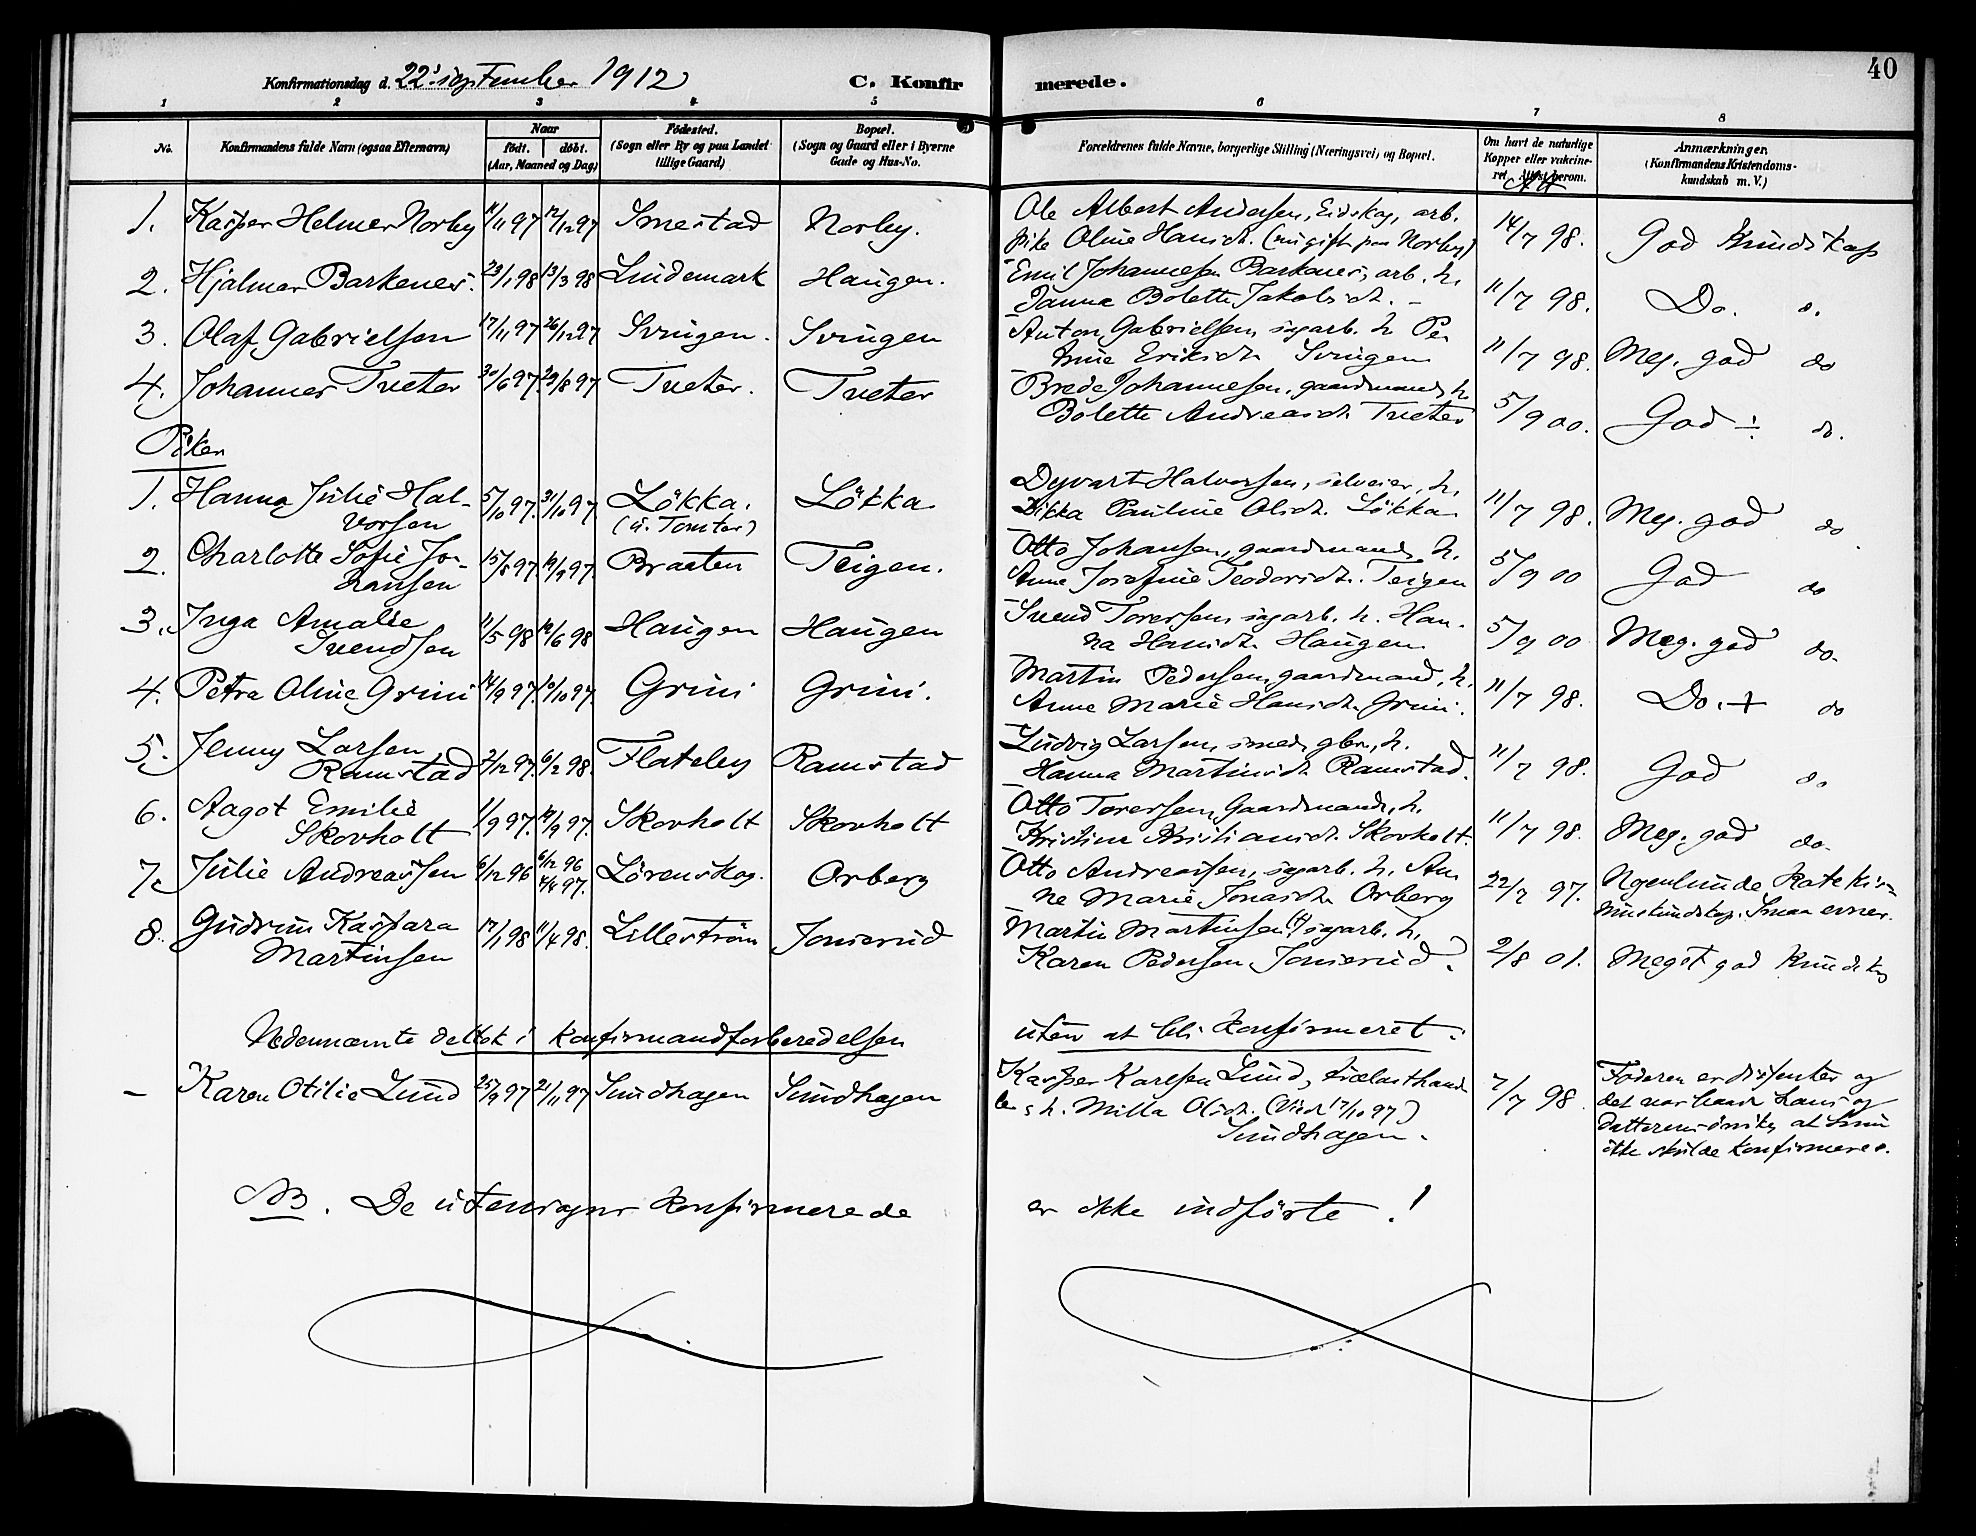 40
Konfirmationsdag d. 22' september 1912 C. Konfirmerede.
1 2 3 4 5 6 7 8
No. Konfirmandens fulde Navn (ogsaa Efternavn) Naar født. døbt. (Aar, Maaned og Dag) Fødested. (Sogn eller By og paa Landet tillige Gaard) Bopæl. (Sogn og Gaard eller i Byerne Gade og Hus-No. Forældrenes fulde Navne, borgerlige Stilling (Næringsvei) og Bopæl. Om havt de naturlige Kopper eller vakcineret. Attest herom. Anmærkninger. (Konfirmandens Kristendomskundskab m. V.)
1. Kasper Helmer Norby 11/11 97 12/12 97 Smestad Norby. Ole Albert Andersen, Eidskog, arb. 14/7 98. God Kundskap
pike Oline Hansdt. (nu gift paa Norby)
2. Hjalmar Barkenes. 23/1 98 13/3 98 Lindemark Haugen. Emil Johannesen Barkenes, arb. h. 11/7 98. Do. do.
Janna Bolette Jakobsdt. -
3. Olaf Gabrielsen 17/11 97 26/12 97 Svingen. Svingen Anton Gabrielsen, sagarb. h. Pe- 11/7 98. Meg. god do
Anne Eriksdt. Svingen
4. Johannes Tveter 30/6 97. 29/8 97 Tveter. Tveter Brede Johannesen, gaardmand h. 5/9 00. God ÷ do.
Bolette Andreasdt. Tveter
Piker
1. Hanna Julie Hal- 5/10 97. 31/10 97 Løkka. Løkka Dyvart Halvorsen, selveier, h. 11/7 98. Meg. god do
vorsen (u. Tomter) Dikka Pauline Olsdt. Løkka
2. Charlotte Sofie Jo- 15/8 97. 19/9 97. Braaten Teigen. Otto Johansen, gaardmand h. 5/9 00 God do
hansen Anne Josefine Teodorsdt. Teigen
3. Inga Amalie 11/5 98 19/6 98 Haugen Haugen Svend Toresen, sagarb. h. Han- 5/9 00 Meg. god do.
Svendsen na Hansdt. Haugen
4. Petra Oline Grini 14/9 97. 10/10 97. Grini Grini. Martin Pedersen, gaardmand, h. 11/7 98. Do. + do
Anne Marie Hansdt. Grini.
5. Jenny Larsen 2/12 97. 6/2 98. Flateby Ramstad Ludvig Larsen, smed, gbr., h. 11/7 98. God do
Ramstad Hanna Martinsdt. Ramstad.
6. Aagot Emilie 1/9 97. 19/9 97. Skovholt Skovholt Otto Toresen, Gaardmand, h. 11/7 98. Meg. god do.
Skovholt Kristine Kristiansdt. Skovholt.
7. Julie Andreassen 6/12 96 6/12 96 Lørenskog. Orberg Otto Andreassen, sagarb. h. An- 22/7 97. Nogenlunde Katekis-
4/4 97. ne Marie Jonasdt. Orberg muskundskap. Smaa evner.
8. Gudrun Kaspara 17/1 98 11/4 98. Lillestrøm Jonsrud Martin Martinsen, (†) sagarb. h. 2/8 01. Meget god kundskap
Martinsen Karen Pedersen Jonsrud.
Nedennævnte deltok i konfirmandforberedelsen uten at bli konfirmeret:
- Karen Otilie Lund 25/9 97 21/11 97 Sundhagen Sundhagen Kasper Karlsen Lund, trælasthand- 7/7 98. Faderen er dissenter og
ler h. Milla Olsdt. (Viet 17/10 97) det var baade hans og
Sundhagen. datterens ønske, at hun
ikke skulde konfirmeres.
NB. De utensogns konfirmerede er ikke indførte!